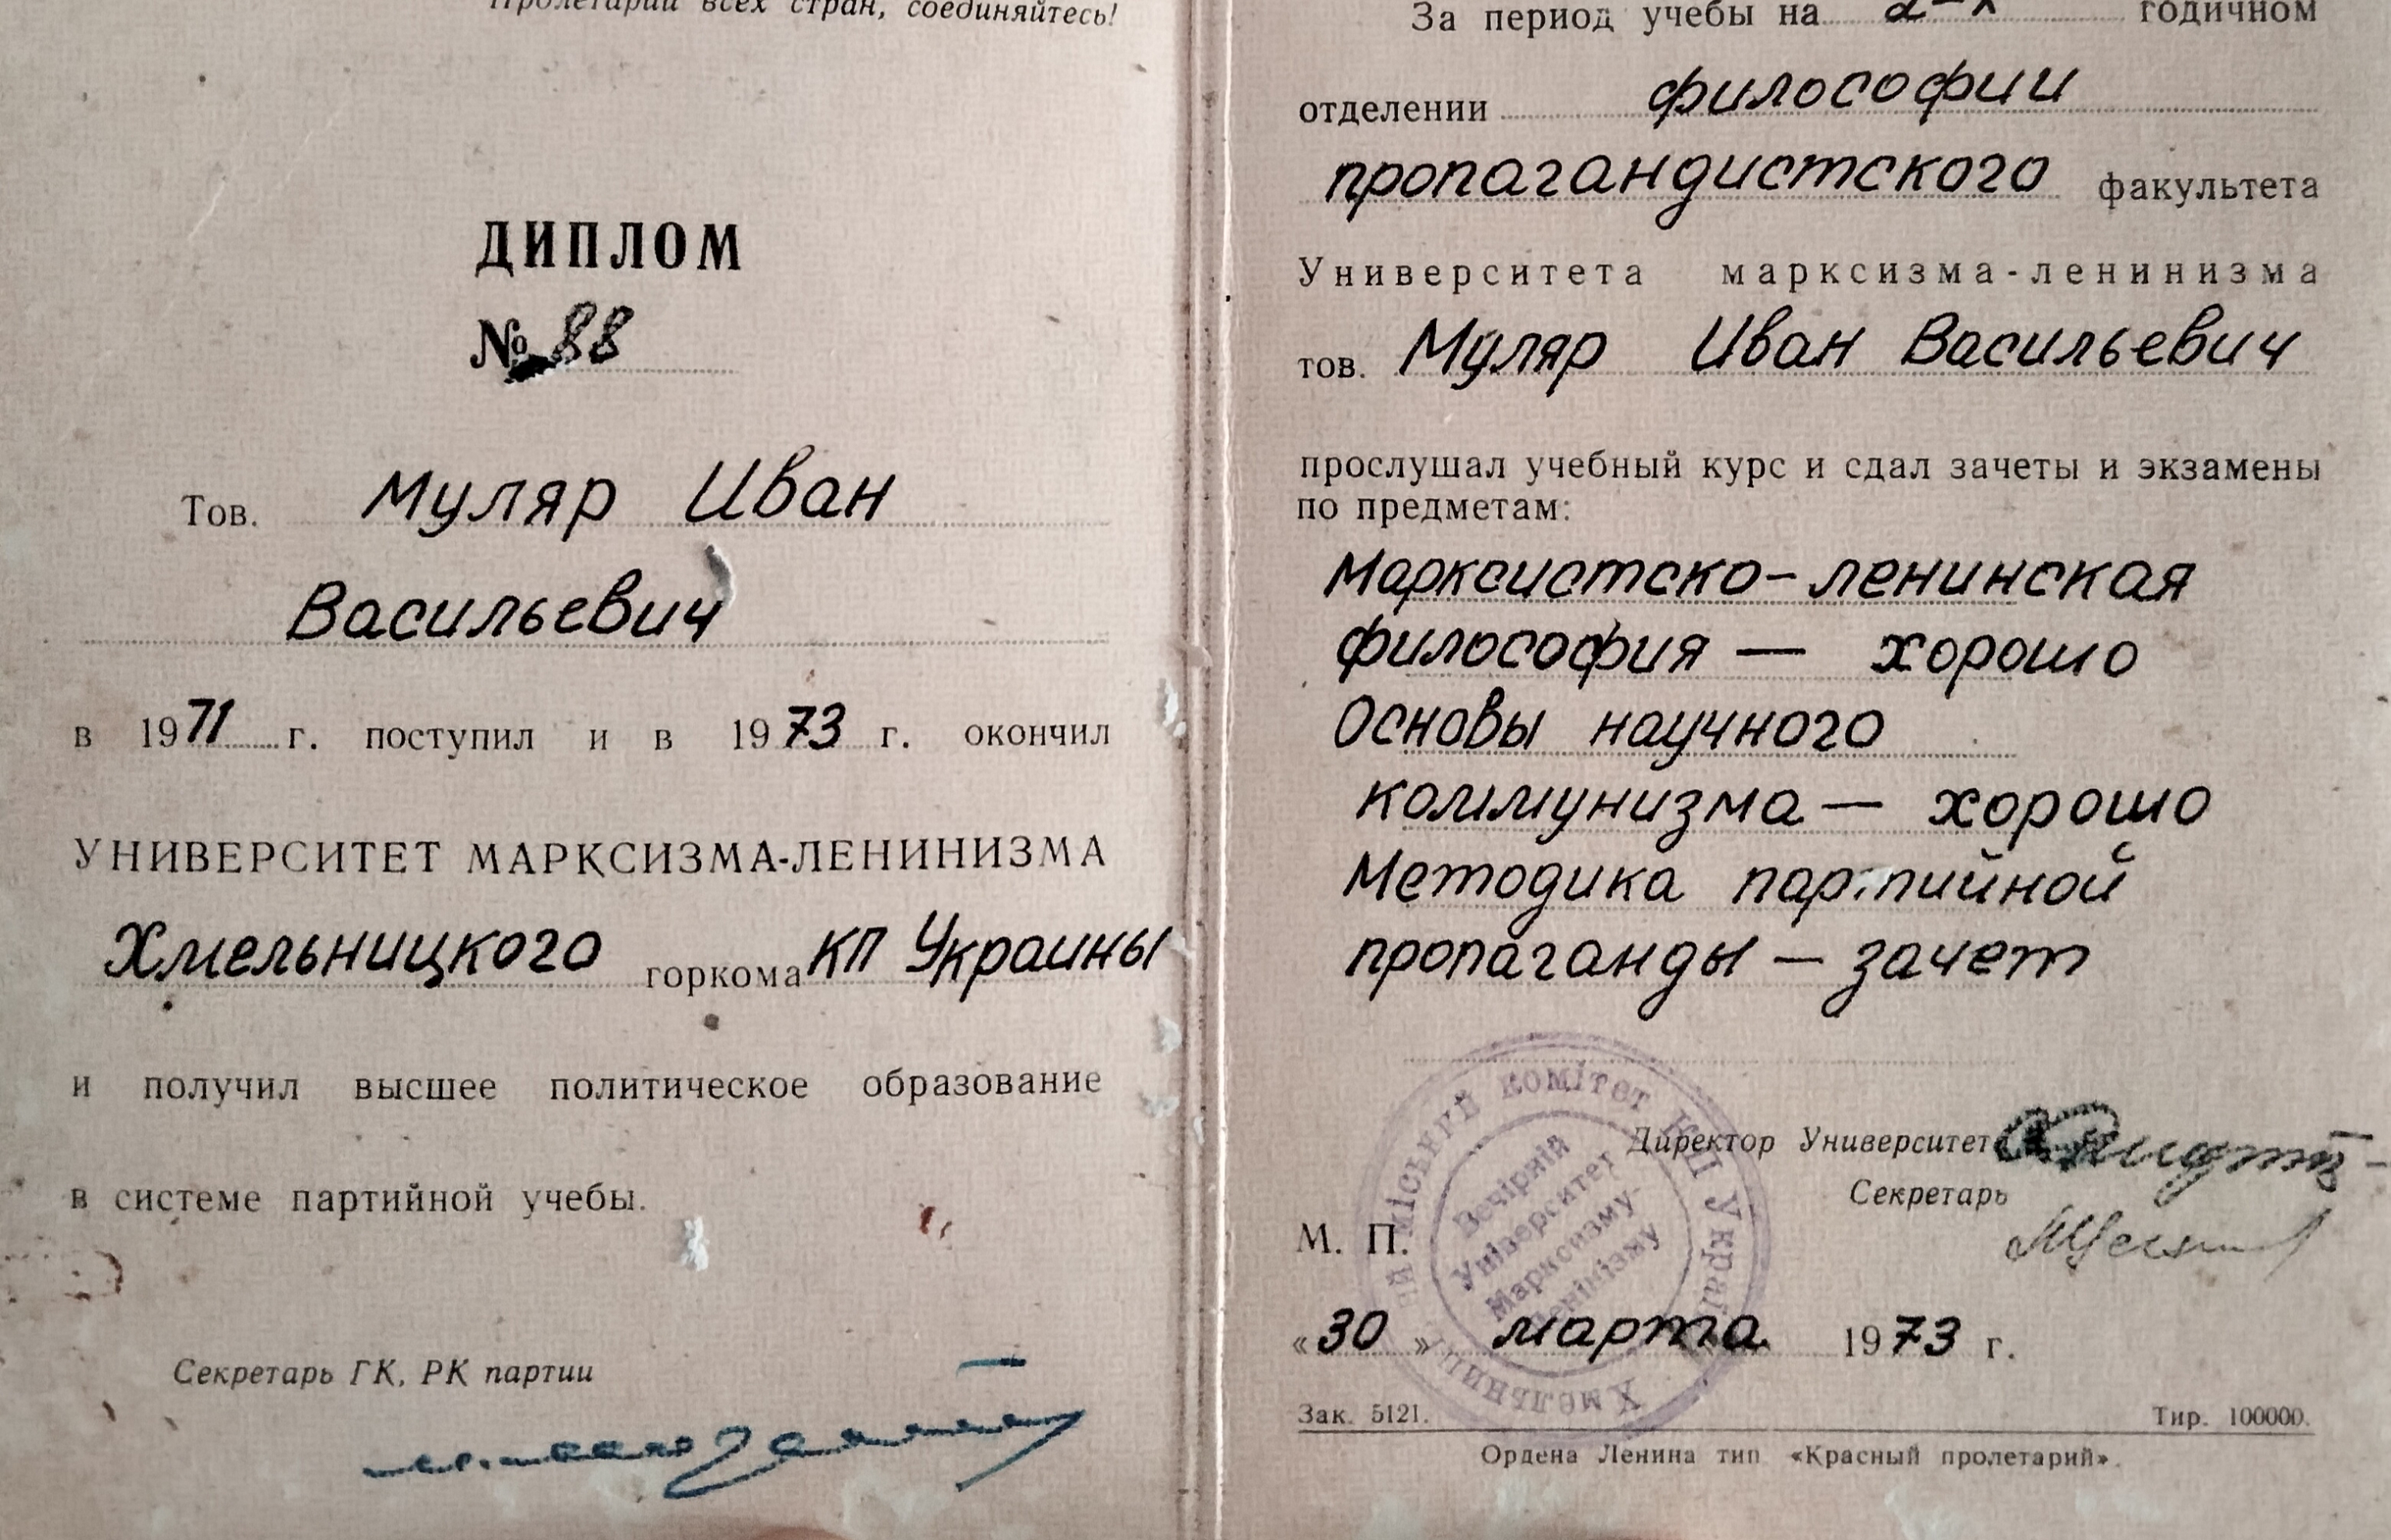 Пролетарии всех стран, соединяйтесь!
ДИПЛОМ
№ 88
Тов. Муляр Иван
Васильевич
в 1971 г. поступил и в 1973 г. окончил
УНИВЕРСИТЕТ МАРКСИЗМА-ЛЕНИНИЗМА
Хмельницкого горкома КП Украины
и получил высшее политическое образование
в системе партийной учебы.
Секретарь ГК, РК партии
За период учебы на 2-х годичном
отделении философии
пропагандистского факультета
Университета марксизма-ленинизма
тов. Муляр Иван Васильевич
прослушал учебный курс и сдал зачеты и экзамены
по предметам:
Марксистско-ленинская
философия — хорошо
Основы научного
коммунизма — хорошо
Методика партийной
пропаганды — зачет
Директор Университета
Секретарь
М. П.
міський комітет КП України
Вечірній
Університет
Марксизму-
Ленінізму
«30» марта 1973 г.
Зак. 5121. Тир. 100000.
Ордена Ленина тип «Красный пролетарий».